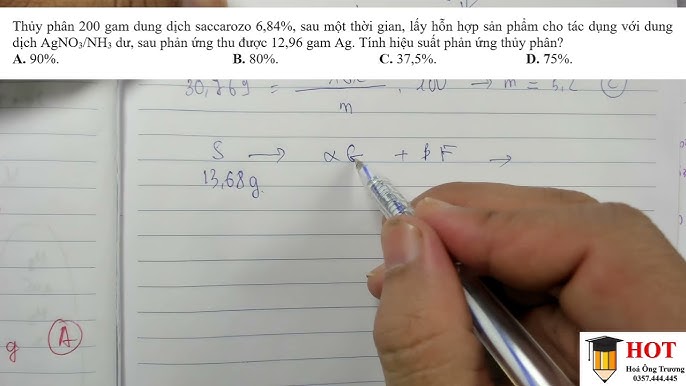 Thủy phân 200 gam dung dịch saccarozo 6,84%, sau một thời gian, lấy hỗn hợp sản phẩm cho tác dụng với dung
dịch AgNO₃/NH₃ dư, sau phản ứng thu được 12,96 gam Ag. Tính hiệu suất phản ứng thủy phân?
A. 90%. B. 80%. C. 37,5%. D. 75%.
30,769 = / m . 100 → m = 5,2 C
S → α G + β F →
13,68g.
g A
HOT
Hoá Ông Trương
0357.444.445